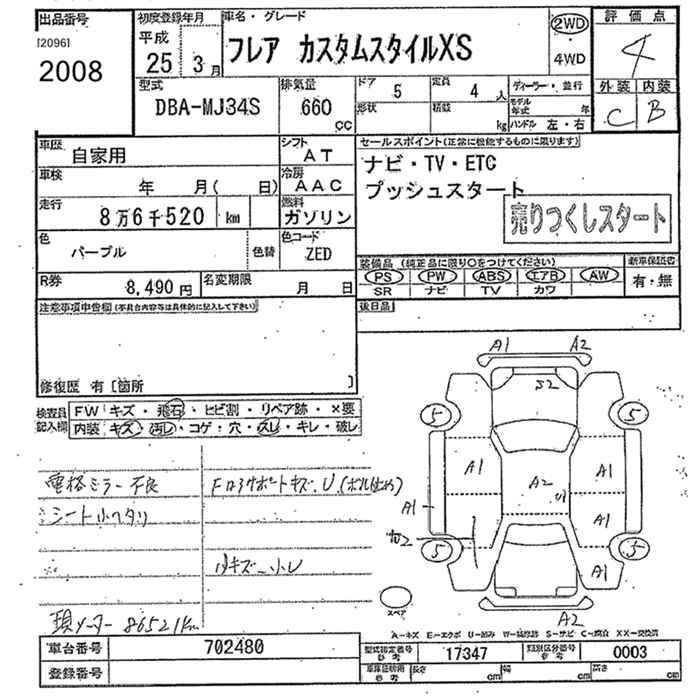 出品番号 初度登録年月 車名・グレード 評価点
[2096]
2008
平成
25 3月
フレア カスタムスタイルXS
2WD
4WD
4
型式 排気量 ドア 5 定員 4人 ディーラー・並行 外装 内装
DBA-MJ34S 660 cc 形状 積載 kg モデル年式 年 ハンドル 左・右 C B
車歴 自家用 シフト AT セールスポイント(正常に機能するものに限ります)
車検 年 月( 日) 冷房 AAC ナビ・TV・ETC
プッシュスタート
走行 8万6千520 km 燃料 ガソリン 売りつくしスタート
色 パープル 色替 色コード ZED
装備品 (純正品に限り○をつけてください) 新車保証書
PS PW ABS エアB AW 有・無
SR ナビ TV カワ
R券 8,490円 名変期限 月 日
注意事項申告欄(不具合内容等は具体的に記入して下さい) 後日品
修復歴 有 [箇所 ]
検査員記入欄 FW キズ・飛石・ヒビ割・リペア跡・×要
内装 キズ・汚レ・コゲ・穴・スレ・キレ・破レ
電格ミラー不良
シート小ヘタリ
内キズ 小レ
現メーター 86521km
A1 A2
S2
5 5
A1 A2 A1
A1 U1 A1
5 5
A1
A2
スペア
A-キズ E-エクボ U-凹み W-補修跡 S-サビ C-腐食 XX-交換済
車台番号 702480 型式指定番号 参考 17347 類別区分番号 参考 0003
登録番号 車庫証明用 参考 長さ cm 幅 cm 高さ cm